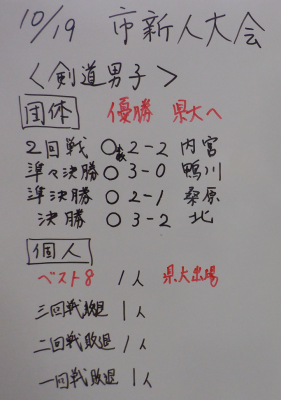 10/19 市新人大会
<剣道男子>
団体 優勝 県大へ
2回戦 ○ 2-2 内宮
準々決勝 ○ 3-0 鴨川
準決勝 ○ 2-1 桑原
決勝 ○ 3-2 北
個人
ベスト8 1人 県大出場
三回戦敗退 1人
二回戦敗退 1人
一回戦敗退 1人